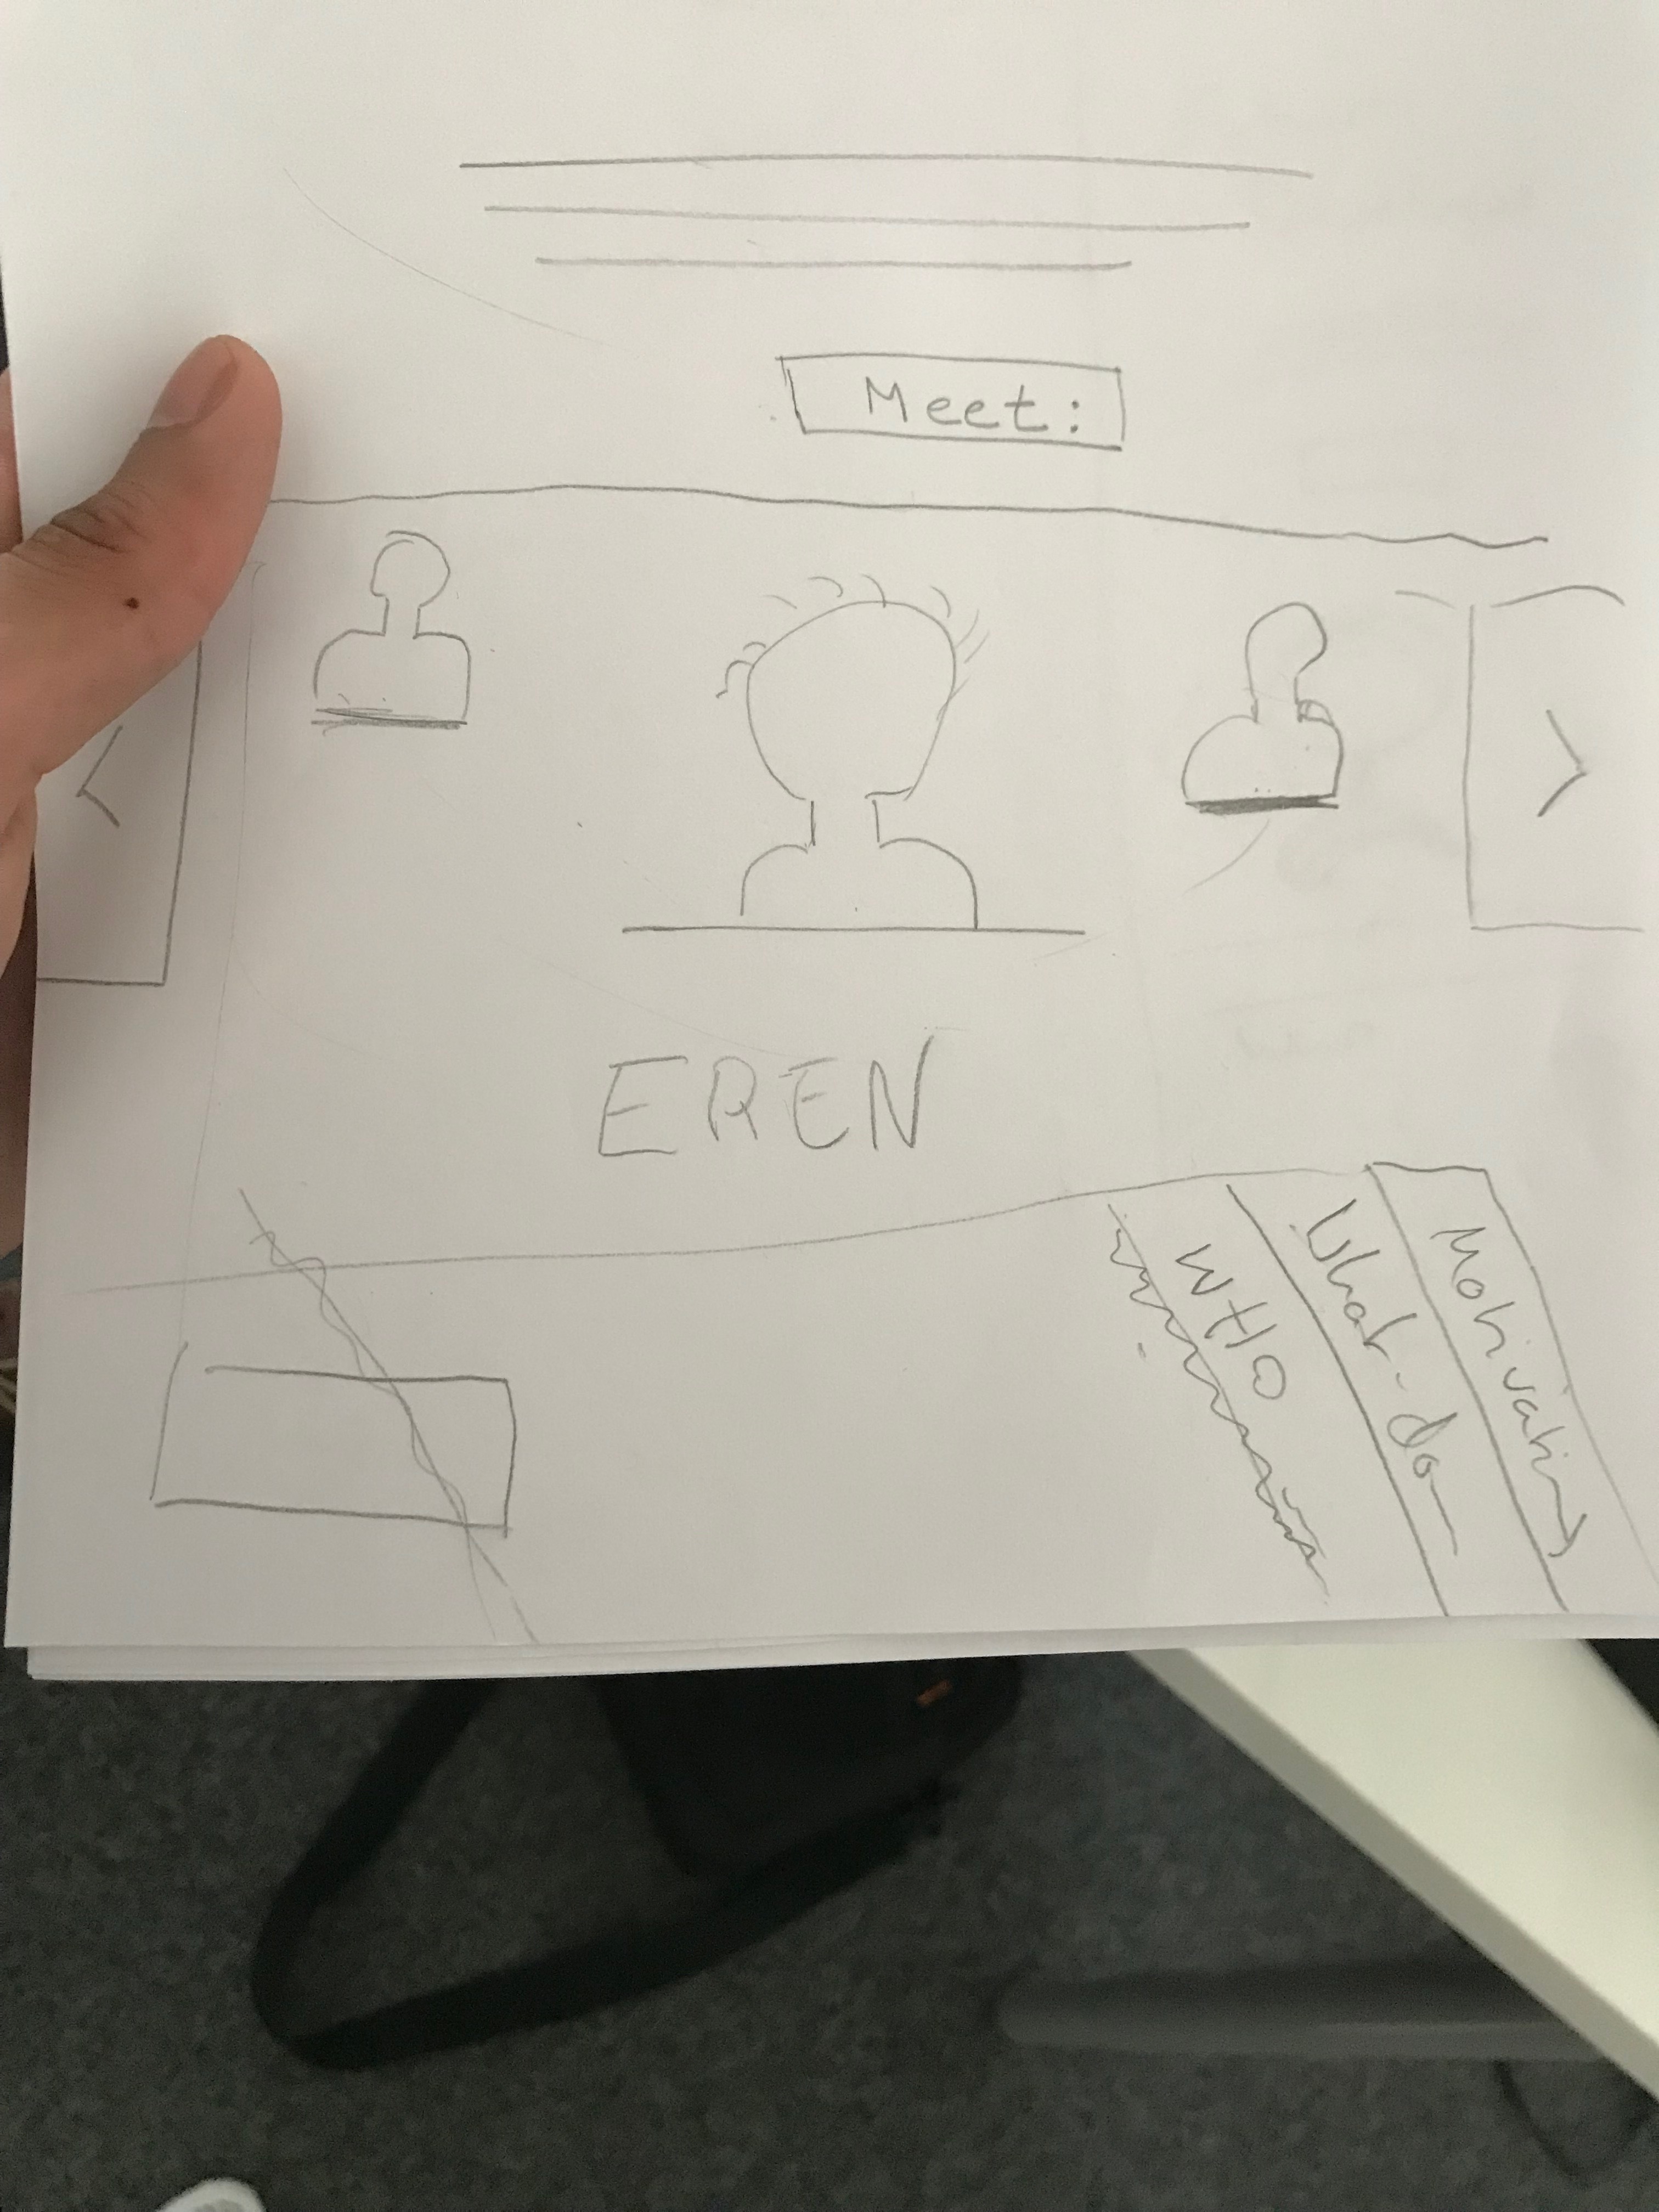 Meet:
<
>
EREN
WHO
What-do
Motivation